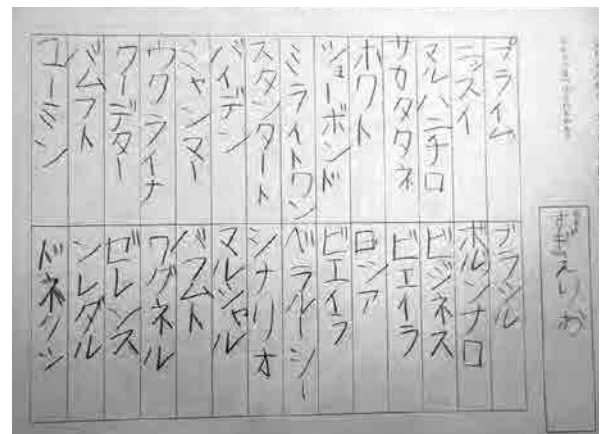 すぎえりか
プライム
ニッスイ
マルハニチロ
サカタタネ
ホクト
ショーボンド
ミライトワン
スタンタート
バイデン
ミャンマー
ウクライナ
ワーデター
バムフト
ユーミン
ブラジル
ボルソナロ
ビジネス
ビエイラ
ロシア
ビエイラ
ベラルーシー
シナリオ
マルシャル
バフムト
ワグネル
ゼレンス
ソレダル
ドネツク